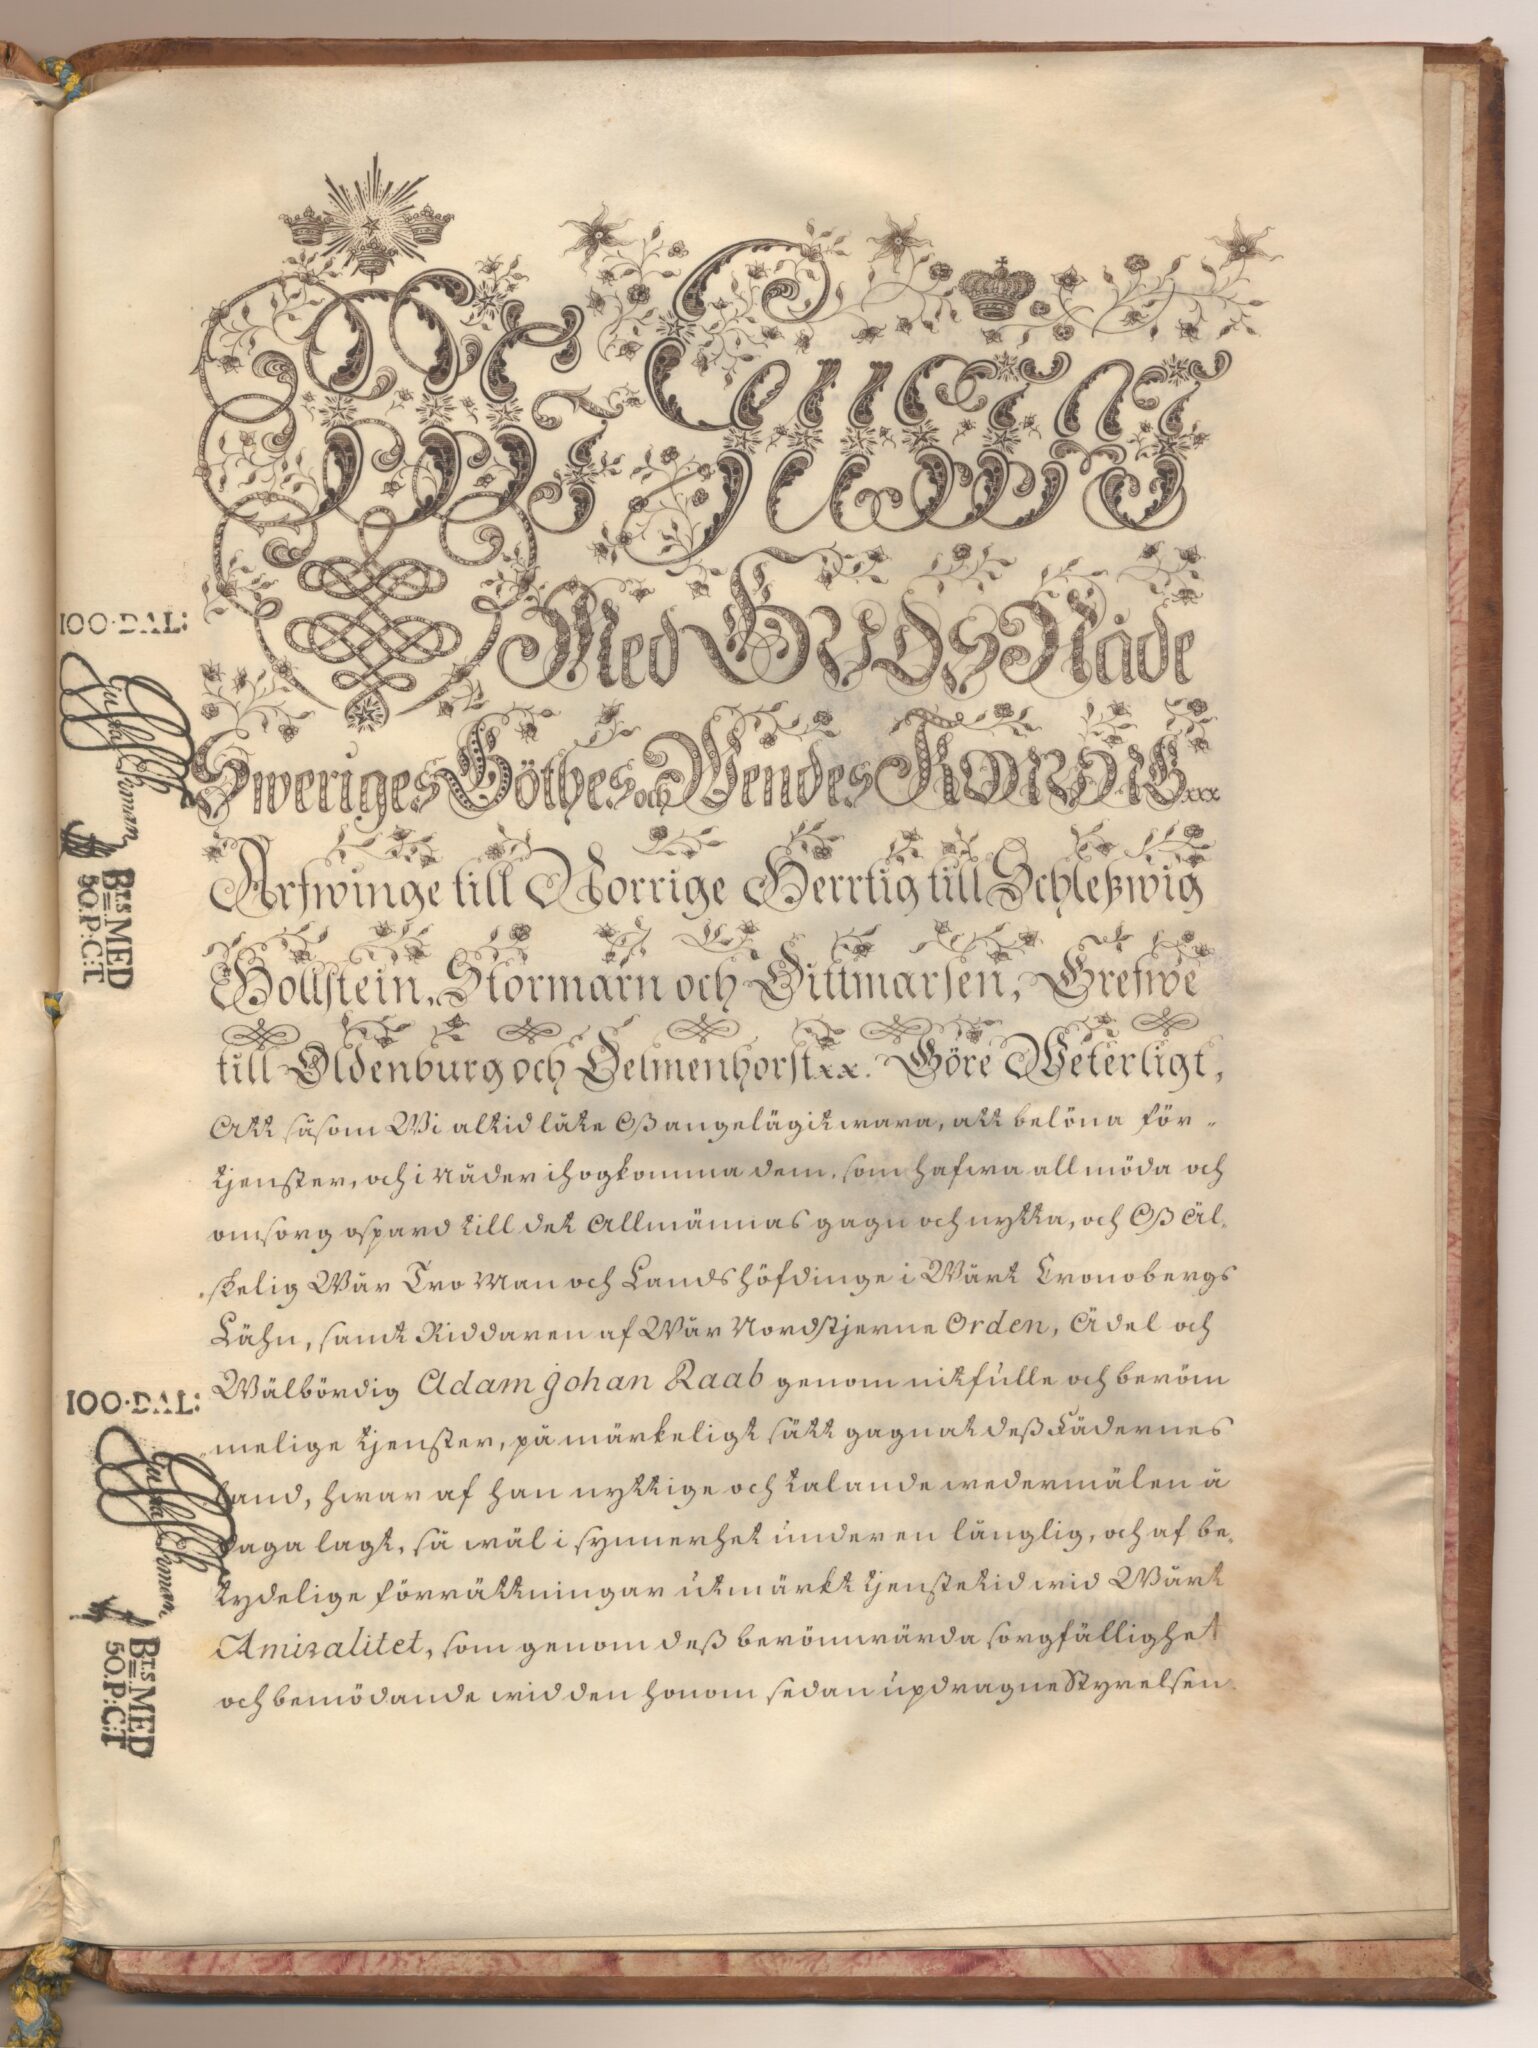 Wi Gustaf
Med GUDS Nåde
Sweriges Göthes och Wendes KONUNG xxx
Arfwinge till Norrige Herrtig till Schleßwig
Hollstein, Stormarn och Dittmarsen, Grefwe
till Oldenburg och Delmenhorst xx. Göre Weterligt,
Att såsom Wi altid låte Oß angelägit wara, att belöna för-
tjenster, och i Nåder ihogkomma dem, som hafwa all möda och
omsorg ospard till det Allmännas gagn och nytta, och Oß Äl-
skelig Wår Tro Man och Landshöfdinge i Wårt Cronobergs
Lähn, samt Riddaren af Wår Nordstjerne Orden, Ädel och
Wälbördig Adam Johan Raab genom nitfulle och beröm
melige tjenster, på märkeligt sätt gagnat deß Fädernes
land, hwar af han nyttige och talande wedermälen å
daga lagt, så wäl i synnerhet under en länglig, och af be-
tydelige förrättningar utmärkt tjenstetid wid Wårt
Amiralitet, som genom deß berömwärda sorgfällighet
och bemödande wid den honom sedan updragne Styrelsen
100·DAL:
Brs MED
50.P:C:T
100·DAL:
Brs MED
50.P:C:T